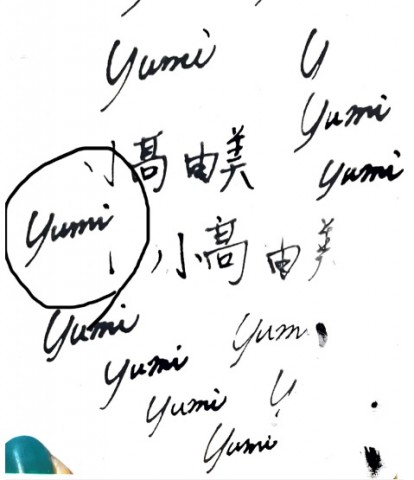 yumi y
yumi
小髙 由美 yumi
yumi
小髙 由美
yumi
yum
yumi
yumi y
yumi